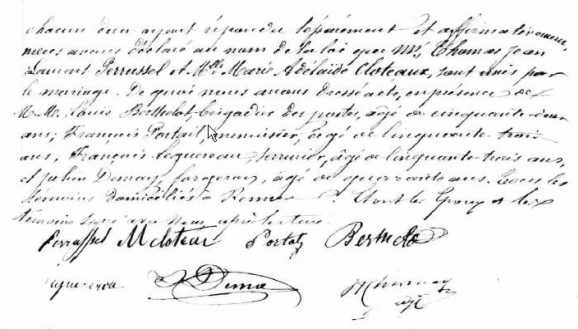 chacun d'eux ayant répondu séparément et affirmativement,
nous avons déclaré au nom de la loi que Mr. Thomas Jean
Laurent Perrussel et Mlle. Marie Adélaïde Cloteaux, sont unis par
le mariage. De quoi nous avons dressé acte, en présence de
M.M. Louis Berthelot, brigadier des postes, âgé de cinquante deux
ans; François Portail, menuisier, âgé de cinquante trois
ans, François Lequereau, serrurier, âgé de cinquante trois ans,
et Julien forgeron, âgé de quarante ans. tous les
témoins domiciliés à Et ont les Epoux et les
témoins signé avec nous, après lecture.
Perrussel M Coteau Portail Berthelot